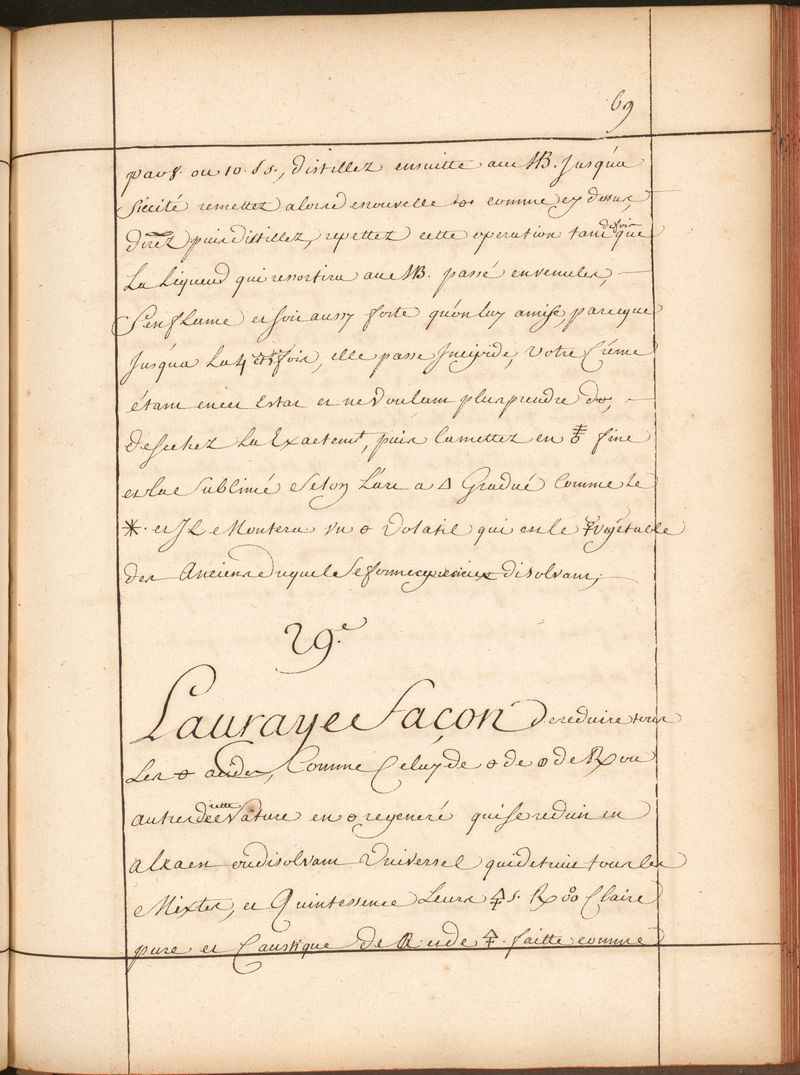 69
par 8. ou 10. ss., distillez ensuitte au MB. Jusqu'a
Siccité remettez alors de nouvelle comme cy dessus
direz puis distillez, repettez cette operation tant de fois que
La Liqueur qui ressortira au MB. passé en venules,
S'enflame et soit aussy forte qu'on luy a mise, parceque
Jusqu'a La 4 fois, elle passe Jncipide, Votre Crème
étant en cet Estat et ne Voulant plus prendre
desechez La Exactemt, puis la mettez en 🜿 fine
et la Sublimé Selon L'art a △ Gradué Comme le
✳. et Jl Montera un Volatil qui est le Vegetable
des Anciens duquel Se forme disolvant;
29.e
La vraye Façon de reduire tous
Les acides, Comme Celuy de de de ou
autres de cette Nature en regeneré qui se reduit en
alxaest ou disolvant Universel qui detruit tous les
Mixtes, et Quintessence Leurs Claire
pure et Caustique de et de faitte comme